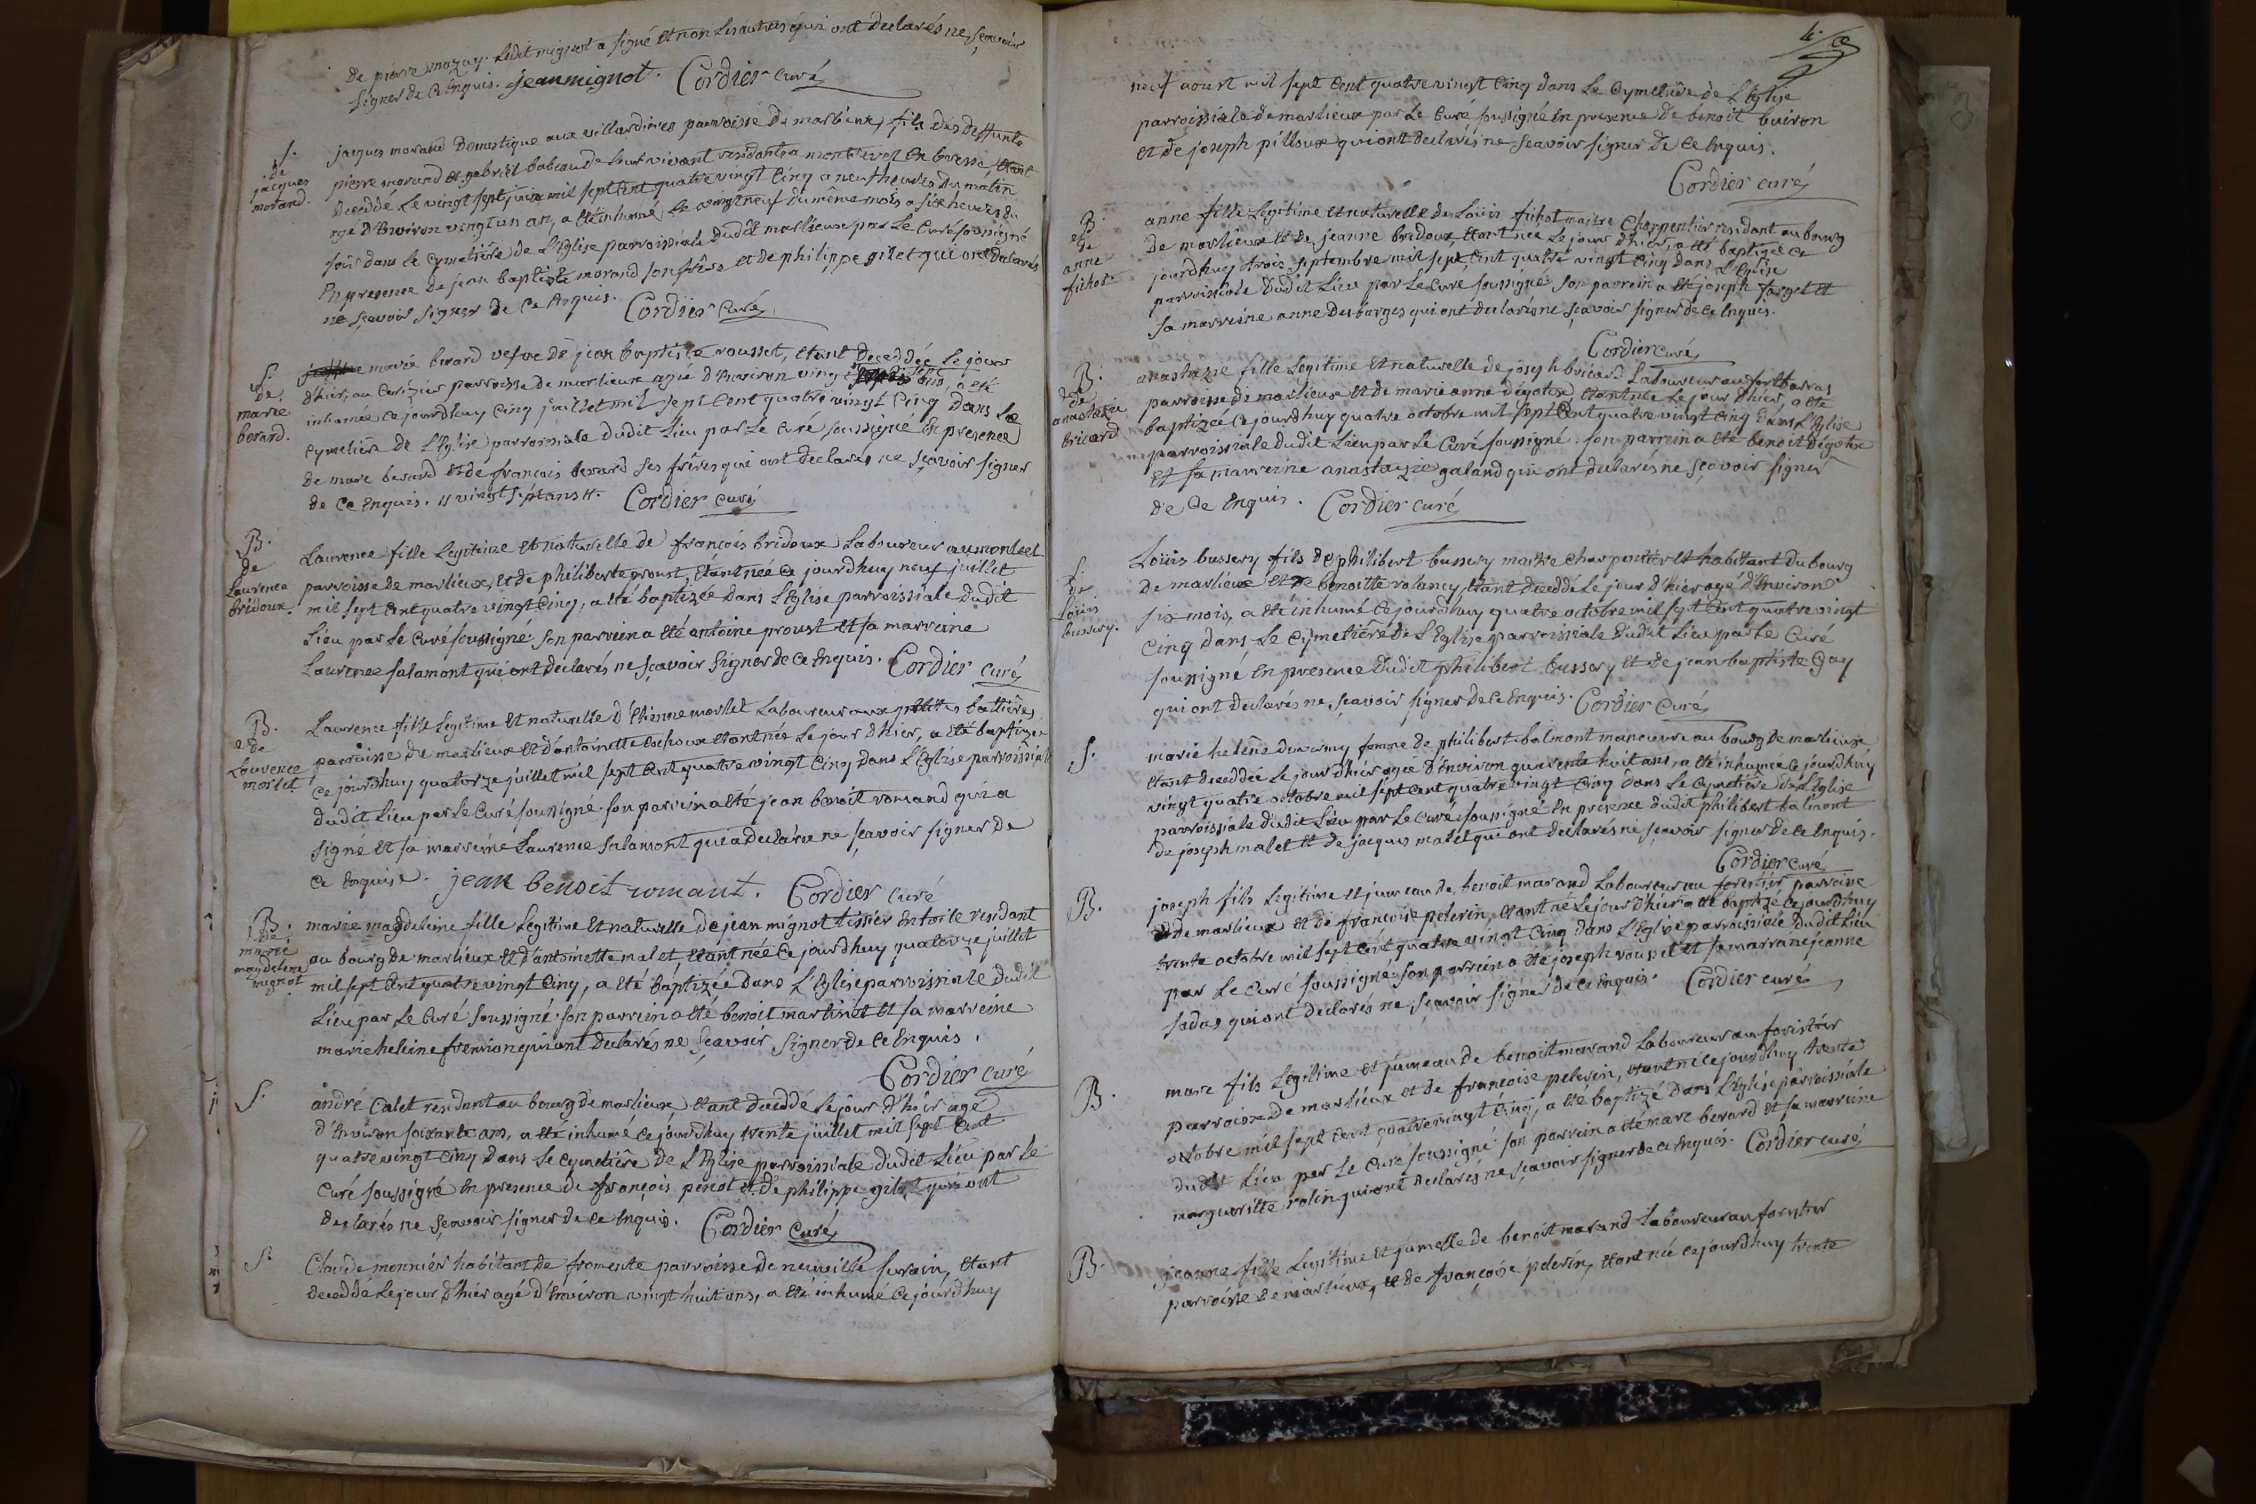 de pierre mazuy. Ledit mignot a signé et non Les autres qui ont declarés ne sçavoir
signer de ce Enquis. jean mignot. Cordier curé
S.
de
jacques
morand.
jacques morand Domestique aux villardieres parroisse de marlieux, fils des deffunts
pierre morand et gabriel babeau de Leur vivant residants a montrevel en bresse, Etant
decedé Le vingt sept juin mil sept Cent quatre vingt Cinq a neuf heures du matin
agé d'Environ vingt un an, a été inhumé Le vingt neuf du même mois a six heures du
soir dans le cymetière de L'Eglise parroissiale dudit marlieux par Le Curé soussigné
En presence de jean baptiste morand son frère et de philippe gilet qui ont declarés
ne sçavoir signer de Ce Enquis. Cordier Curé
S.
de
marie
berard.
marie berard vefve de jean baptiste rousset, Etant Deceddée Le jour
d'hier, au parroisse de marlieux agée d'Environ vingt ans, a eté
inhumée Ce jourdhuy Cinq juillet mil sept Cent quatre vingt Cinq dans Le
Cymetière de L'Eglise parroissiale dudit Lieu par Le Curé soussigné En presence
de marc berard et de francois berard ses frères qui ont declarés ne sçavoir signer
de Ce Enquis. // vingt sept ans //. Cordier curé
B.
de
Laurence
bridoux.
Laurence fille Legitime et naturelle de françois bridoux Laboureur au montcel
parroisse de marlieux, et de philiberte proust, Etant née Ce jourdhuy neuf juillet
mil sept Cent quatre vingt Cinq, a été baptizée dans L'Eglise parroissiale dudit
Lieu par Le Curé soussigné. son parrein a été antoine proust et sa marreine
Laurence salamont qui ont declarés ne sçavoir signer de Ce Enquis. Cordier curé
B.
de
Laurence
morlet
Laurence fille Legitime et naturelle d'Etienne morlet Laboureur aux petites battieres
parroisse de marlieux et d'antoinette Etant née Le jour d'hier, a été baptizée
Ce jourdhuy quatorze juillet mil sept Cent quatre vingt Cinq dans L'Eglise parroissiale
dudit Lieu par Le Curé soussigné. son parrein a été jean benoit romand qui a
signé et sa marreine Laurence Salamont qui a declarée ne sçavoir signer de
Ce Enquise. jean benoit romant. Cordier curé
B.
de
marie
magdeleine
mignot
marie magdeleine fille Legitime et naturelle de jean mignot tissier En toile residant
au bourg de marlieux et d'antoinette malet, Etant née Ce jourdhuy quatorze juillet
mil sept Cent quatre vingt Cinq, a été baptizée Dans L'Eglise parroissiale dudit
Lieu par Le Curé soussigné. son parrein a été benoit martinet et sa marreine
marie heleine qui ont declarés ne sçavoir signer de Ce Enquis.
Cordier curé
S.
andré Calet residant au bourg de marlieux, Etant deceddé Le jour d'hier agé
d'Environ soixante ans, a été inhumé Ce jourdhuy trente juillet mil sept Cent
quatre vingt Cinq dans Le Cymetière de L'Eglise parroissiale dudit Lieu par Le
Curé soussigné En presence de françois et de philippe gilet qui ont
declarés ne sçavoir signer de Ce Enquis. Cordier Curé
S.
Claude monnier habitant de fromente parroisse de neuville surain, Etant
deceddé Le jour d'hier agé d'Environ vingt huit ans, a été inhumé Ce jourdhuy
neuf aoust mil sept Cent quatre vingt Cinq dans Le Cymetière de L'Eglise
parroissiale de marlieux par Le Curé soussigné En presence de benoit buiron
et de joseph pilloux qui ont declarés ne sçavoir signer de Ce Enquis.
Cordier curé
B.
de
anne
fichot
anne fille Legitime et naturelle de Loüis fichot maitre Charpentier residant au bourg
de marlieux et de jeanne bridoux, Etant née Le jour d'hier, a été baptizée Ce
jourdhuy trois septembre mil sept Cent quatre vingt Cinq dans L'Eglise
parroissiale dudit Lieu par Le Curé soussigné. son parrein a été joseph farget et
sa marreine anne Desbarges qui ont declarés ne sçavoir signer de Ce Enquis.
Cordier curé
B.
de
anastazie
bricard
anastazie fille Legitime et naturelle de joseph bricard Laboureur au
parroisse de marlieux et de marie anne degotex Etant née Le jour d'hier, a été
baptizée Ce jourdhuy quatre octobre mil sept Cent quatre vingt Cinq dans L'Eglise
parroissiale dudit Lieu par Le Curé soussigné. son parrein a été benoit degotex
et sa marreine anastazie galand qui ont declarés ne sçavoir signer
de Ce Enquis. Cordier curé
S.
de
Loüis
bussery.
Loüis bussery fils de philibert bussery maitre charpentier et habitant du bourg
de marlieux et de benoitte rolancy, Etant deceddé Le jour d'hier agé d'Environ
six mois, a été inhumé Ce jourdhuy quatre octobre mil sept Cent quatre vingt
Cinq dans Le Cymetière de L'Eglise parroissiale dudit Lieu par Le Curé
soussigné En presence dudit philibert bussery et de jean baptiste Gay
qui ont declarés ne sçavoir signer de Ce Enquis. Cordier Curé
S.
marie heleine femme de philibert balmont manoeuvre au bourg de marlieux
Etant deceddée Le jour d'hier agée d'Environ quarente huit ans, a été inhumée Ce jourdhuy
vingt quatre octobre mil sept Cent quatre vingt Cinq dans Le Cymetière de L'Eglise
parroissiale dudit Lieu par Le Curé soussigné En presence dudit philibert balmont
de joseph malet et de jacques malet qui ont declarés ne sçavoir signer de Ce Enquis.
Cordier curé
B.
joseph fils Legitime et jumeau de benoit marand Laboureur au forestier parroisse
de marlieux et de françoise pelerin, Etant né Le jour d'hier a été baptizé Ce jourdhuy
trente octobre mil sept Cent quatre vingt Cinq dans L'Eglise parroissiale dudit Lieu
par Le Curé soussigné. son parrein a été joseph rousset et sa marraine jeanne
sadas qui ont declarés ne sçavoir signer de Ce Enquis. Cordier curé
B.
marc fils Legitime et jumeau de benoit marand Laboureur au forestier
parroisse de marlieux et de françoise pelerin, Etant né Ce jourdhuy trente
octobre mil sept Cent quatre vingt Cinq, a été baptizé dans L'Eglise parroissiale
dudit Lieu par Le Curé soussigné. son parrein a été marc berard et sa marreine
marguerite rolin qui ont declarés ne sçavoir signer de Ce Enquis. Cordier curé
B.
jeanne fille Legitime et jumelle de benoit marand Laboureur au forestier
parroisse de marlieux, et de françoise pelerin, Etant née Ce jourdhuy trente